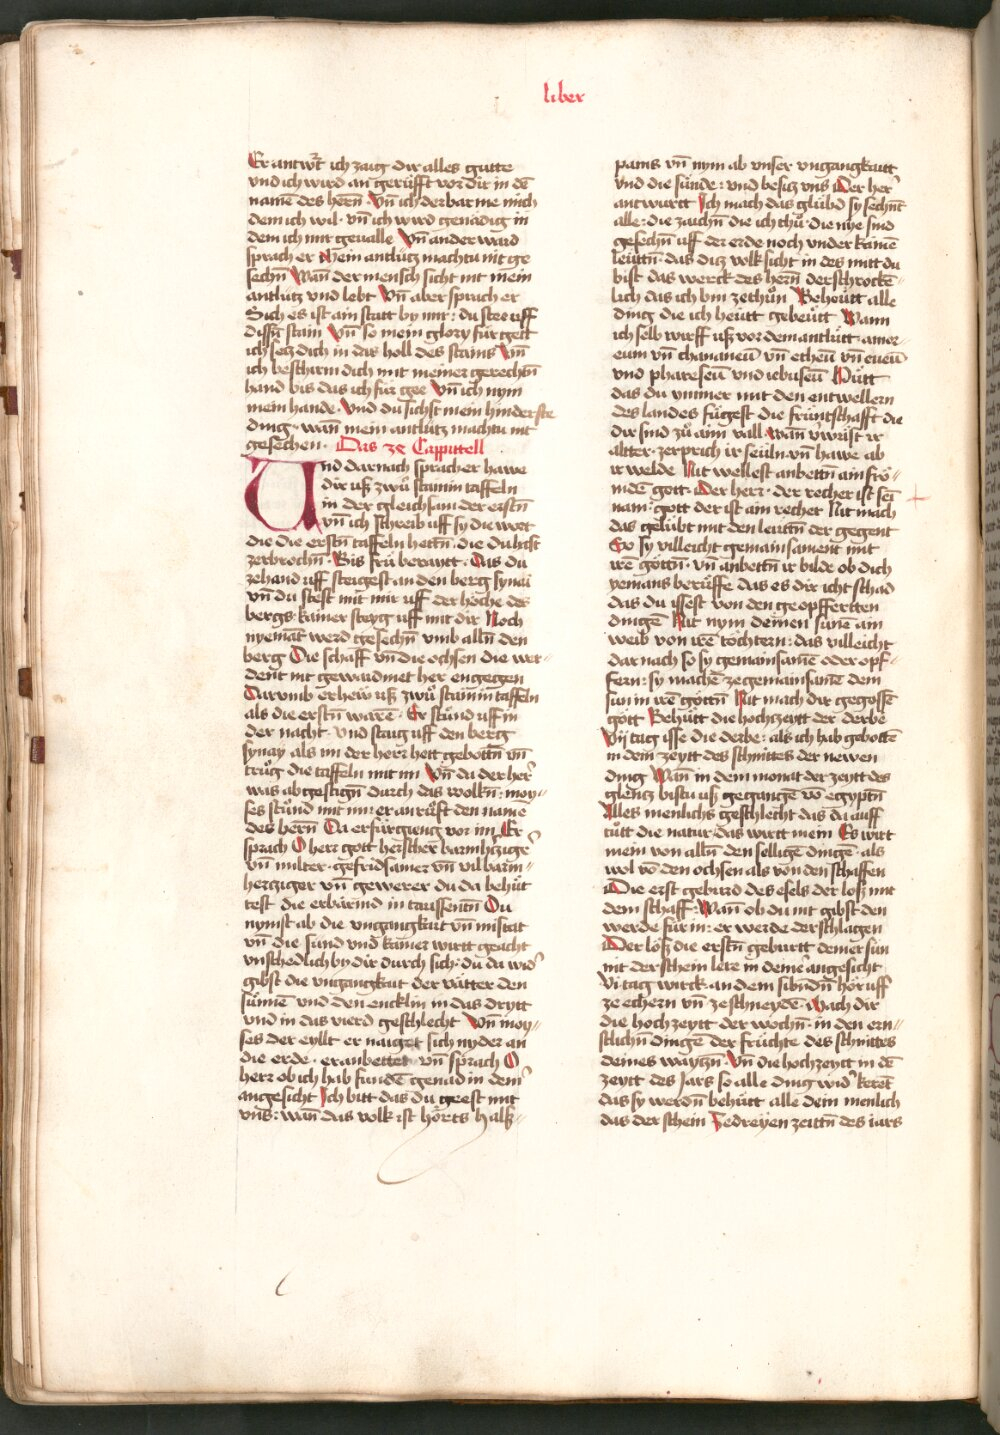 liber
Er antwr̄t ich zaig dir alles gutte
vnd ich wird an gerüfft vor dir in dē
namē des hern̄ Vn̄ ich derbarme mich
dem ich wil · vn̄ ich wird genädig in
dem ich mir geualle Vn̄ ander ward
sprach er Mein antlütz machtu nit ge
sechn̄ Wan̄ der mensch sicht nit mein
antlütz vnd lebt Vn̄ aber sprach er
Sich es ist ain statt by mir : du stee uff
dissn̄ stain Vn̄ so mein glory für geet
ich setz dich in das holl des stains Vn̄
ich beschirm dich mit meiner gerechn̄
hand bis das ich für gee Vn̄ ich nym
mein hande · Vnd du sichst mein hinderste
ding · wan̄ mein antlütz machtu nit
gesechen · Das 34 Cappittell
Vnd darnach sprach er hawe
dir uß zwů stainin taffeln
in der gleichsam der erstn̄
vn̄ ich schreib uff sy die wort
die die erstn̄ taffeln hettn̄ · die du hast
zerbrochn̄ · Bis frü beraitt · Das du
zehand uff steigest an den berg synai
vn̄ du stest mit mir uff der höche des
bergs : kainer steyg uff mit dir Noch
nyemāt werd gesechn̄ vmb alln̄ den
berg Die schaff vn̄ die ochsen die wer-
dent nit gewaidnet her engegen
Darvmb er hew uß zwů stainin taffeln
als die erstn̄ warē · Er stůnd uff in
der nacht · vnd staig uff den berg
synay als im der herr hett gebottn̄ vn̄
trůg die taffeln mit im Vn̄ da der her
was ab gestign̄ durch das wolkn̄ : moy-
ses stůnd mit im : er an růfft den namē
des hern̄ Da er fürgieng vor im Er
sprach O herr gott herscher barmhr̄zige
vn̄ milter · gefridsamer vn̄ vil barm-
hercziger vn̄ gewerer du da behüt
test die erbärmd in taussentn̄ Du
nymst ab die vngangkait vn̄ mistat
vn̄ die sünd vnd kainer wirtt geacht
vnschedlich by dir durch sich · du da wid'
gibst die vngangkait der vätter den
sünnē vnd den encklin in das drytt
vnd in das vierd geschlecht Vn̄ moy-
ses der eyllt er naiget sich nyder an
die erde · er anbettet vn̄ sprach O
herr ob ich hab fundē genad in dem̄
angesicht Ich bitt das du geest mit
vns : wan̄ das volk ist hörts halß-
pains vn̄ nym ab vnser vngangkaitt
vnd die sünde : vnd besitz vns Der her
antwurtt Ich mach das glübd sy sechn̄t
alle : die zaichn̄ die ich thů · die nye sind
gesechn̄ uff der erde noch vnder kainē
leüttn̄ · das diz volk sicht in des mitt du
bist das werck des hern̄ derschrockē-
lich das ich bin zethůn Behoütt alle
ding die ich heütt gebeütt Wann
ich selb wirff uß vor dem antlütt · amor-
eum vn̄ chananeū vn̄ etheū vn̄ eueū
vnd phareseū vnd iebuseū Hütt
das du vmmer mit den entwellern
des landes fügest die früntschafft die
dir sind zů aim vall wan̄ v̄wüst ir
altter · zerprich ir seüln · vn̄ hawe ab
ir welde Nit wellest anbettn̄ ain frö-
mdē gott Der herr · der recher ist sei
nam · gott der ist ain recher Nit mach
das gelübt mit den leuttn̄ der gegent
So sy villeicht gemainsament mit
irē göttn̄ · vn̄ anbettn̄ ir bilde ob dich
yemans berüffe das es dir icht schad
das du issest von den geopffertten
dingē Nit nym deinen sünē ain
weib von irē töchtern : das villeicht
dar nach so sy gemainsamē oder opf-
fern : sy machē ze gemainsamē dem
sun in irē göttn̄ Nit mach dir gegossē
gött Behütt die hochzeytt der derbē
Vij tag isse die derbē : als ich hab gebottē
in dem zeytt des schnittes der newen
ding Wan̄ in dem monat der zeytt des
glentz bistu uß gegangē vō egyptn̄
Alles menlichs geschlecht das da auff
tůtt die natur · das wirtt mein Es wirt
mein von alln̄ den selligē dingē · als
wol vō den ochsen als von den schaffen
Die erst geburd des esels der löß mit
dem schaff · Wan̄ ob du nit gibst den
werde für in : er werde derschlagen
Der löß die erstn̄ geburtt deiner sün
nit derschein lere in deinē angesicht
Vi tag wirck · an dem sibndn̄ hör uff
ze echern vn̄ ze schneydē Mach dir
die hoch zeytt der wochn̄ · in den ern-
stlichn̄ dingē der früchte des schnittes
deines waytzn̄ · Vn̄ die hochzeytt in dē
zeytt des Jars so alle ding wid' kerēt
das sy werdn̄ behütt alle dein menlich
das der schein Ze dreyen zeittn̄ des iars